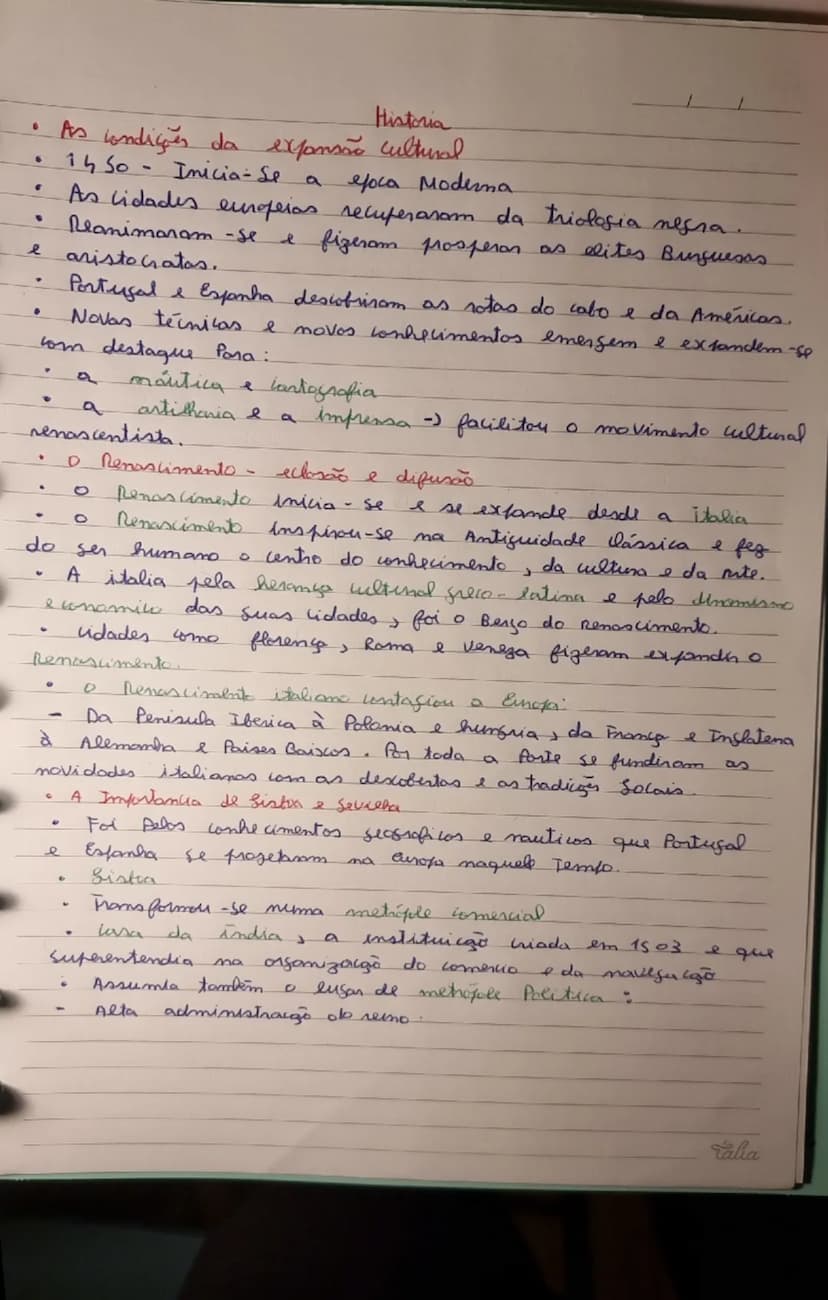 / /
Historia
• As condições da expansão cultural
• 1450 - Inicia-se a epoca Moderna
• As cidades europeias recuperaram da triologia negra.
• Reanimaram-se e fizeram prosperar as elites Burguesas
e aristocratas.
• Portugal e Espanha descobriram as rotas do cabo e da Américas.
• Novas técnicas e novos conhecimentos emergem e expandem-se
com destaque Para:
• a náutica e cartografia
• a artilharia e a Imprensa -> facilitou o movimento cultural
renascentista.
• O Renascimento - eclosão e difusão
• O Renascimento inicia-se e se expande desde a italia
• O Renascimento Inspirou-se na Antiguidade Clássica e fez
do ser humano o centro do conhecimento, da cultura e da Arte.
• A italia pela herança cultural greco-latina e pelo dinamismo
economico das suas cidades, foi o Berço do Renascimento.
• Cidades como florença, Roma e Veneza fizeram expandir o
Renascimento.
• O Renascimento italiano contagiou a Europa:
- Da Peninsula Iberica à Polonia e hungria, da França e Inglaterra
à Alemanha e Paises Baixos. Por toda a Parte se fundiram as
novidades italianas com as descobertas e as tradições Locais.
• A Importancia de Lisboa e Sevilha
• Foi Pelos conhecimentos geograficos e nauticos que Portugal
e Espanha se progetaram na europa naquele Tempo.
• Lisboa
• Transformou-se numa metrópole comercial
• Casa da índia, a instituição criada em 1503 e que
superentendia na organização do comercio e da navegação
• Assumia também o lugar de metrópole Politica:
- Alta administração do reino.
Talia